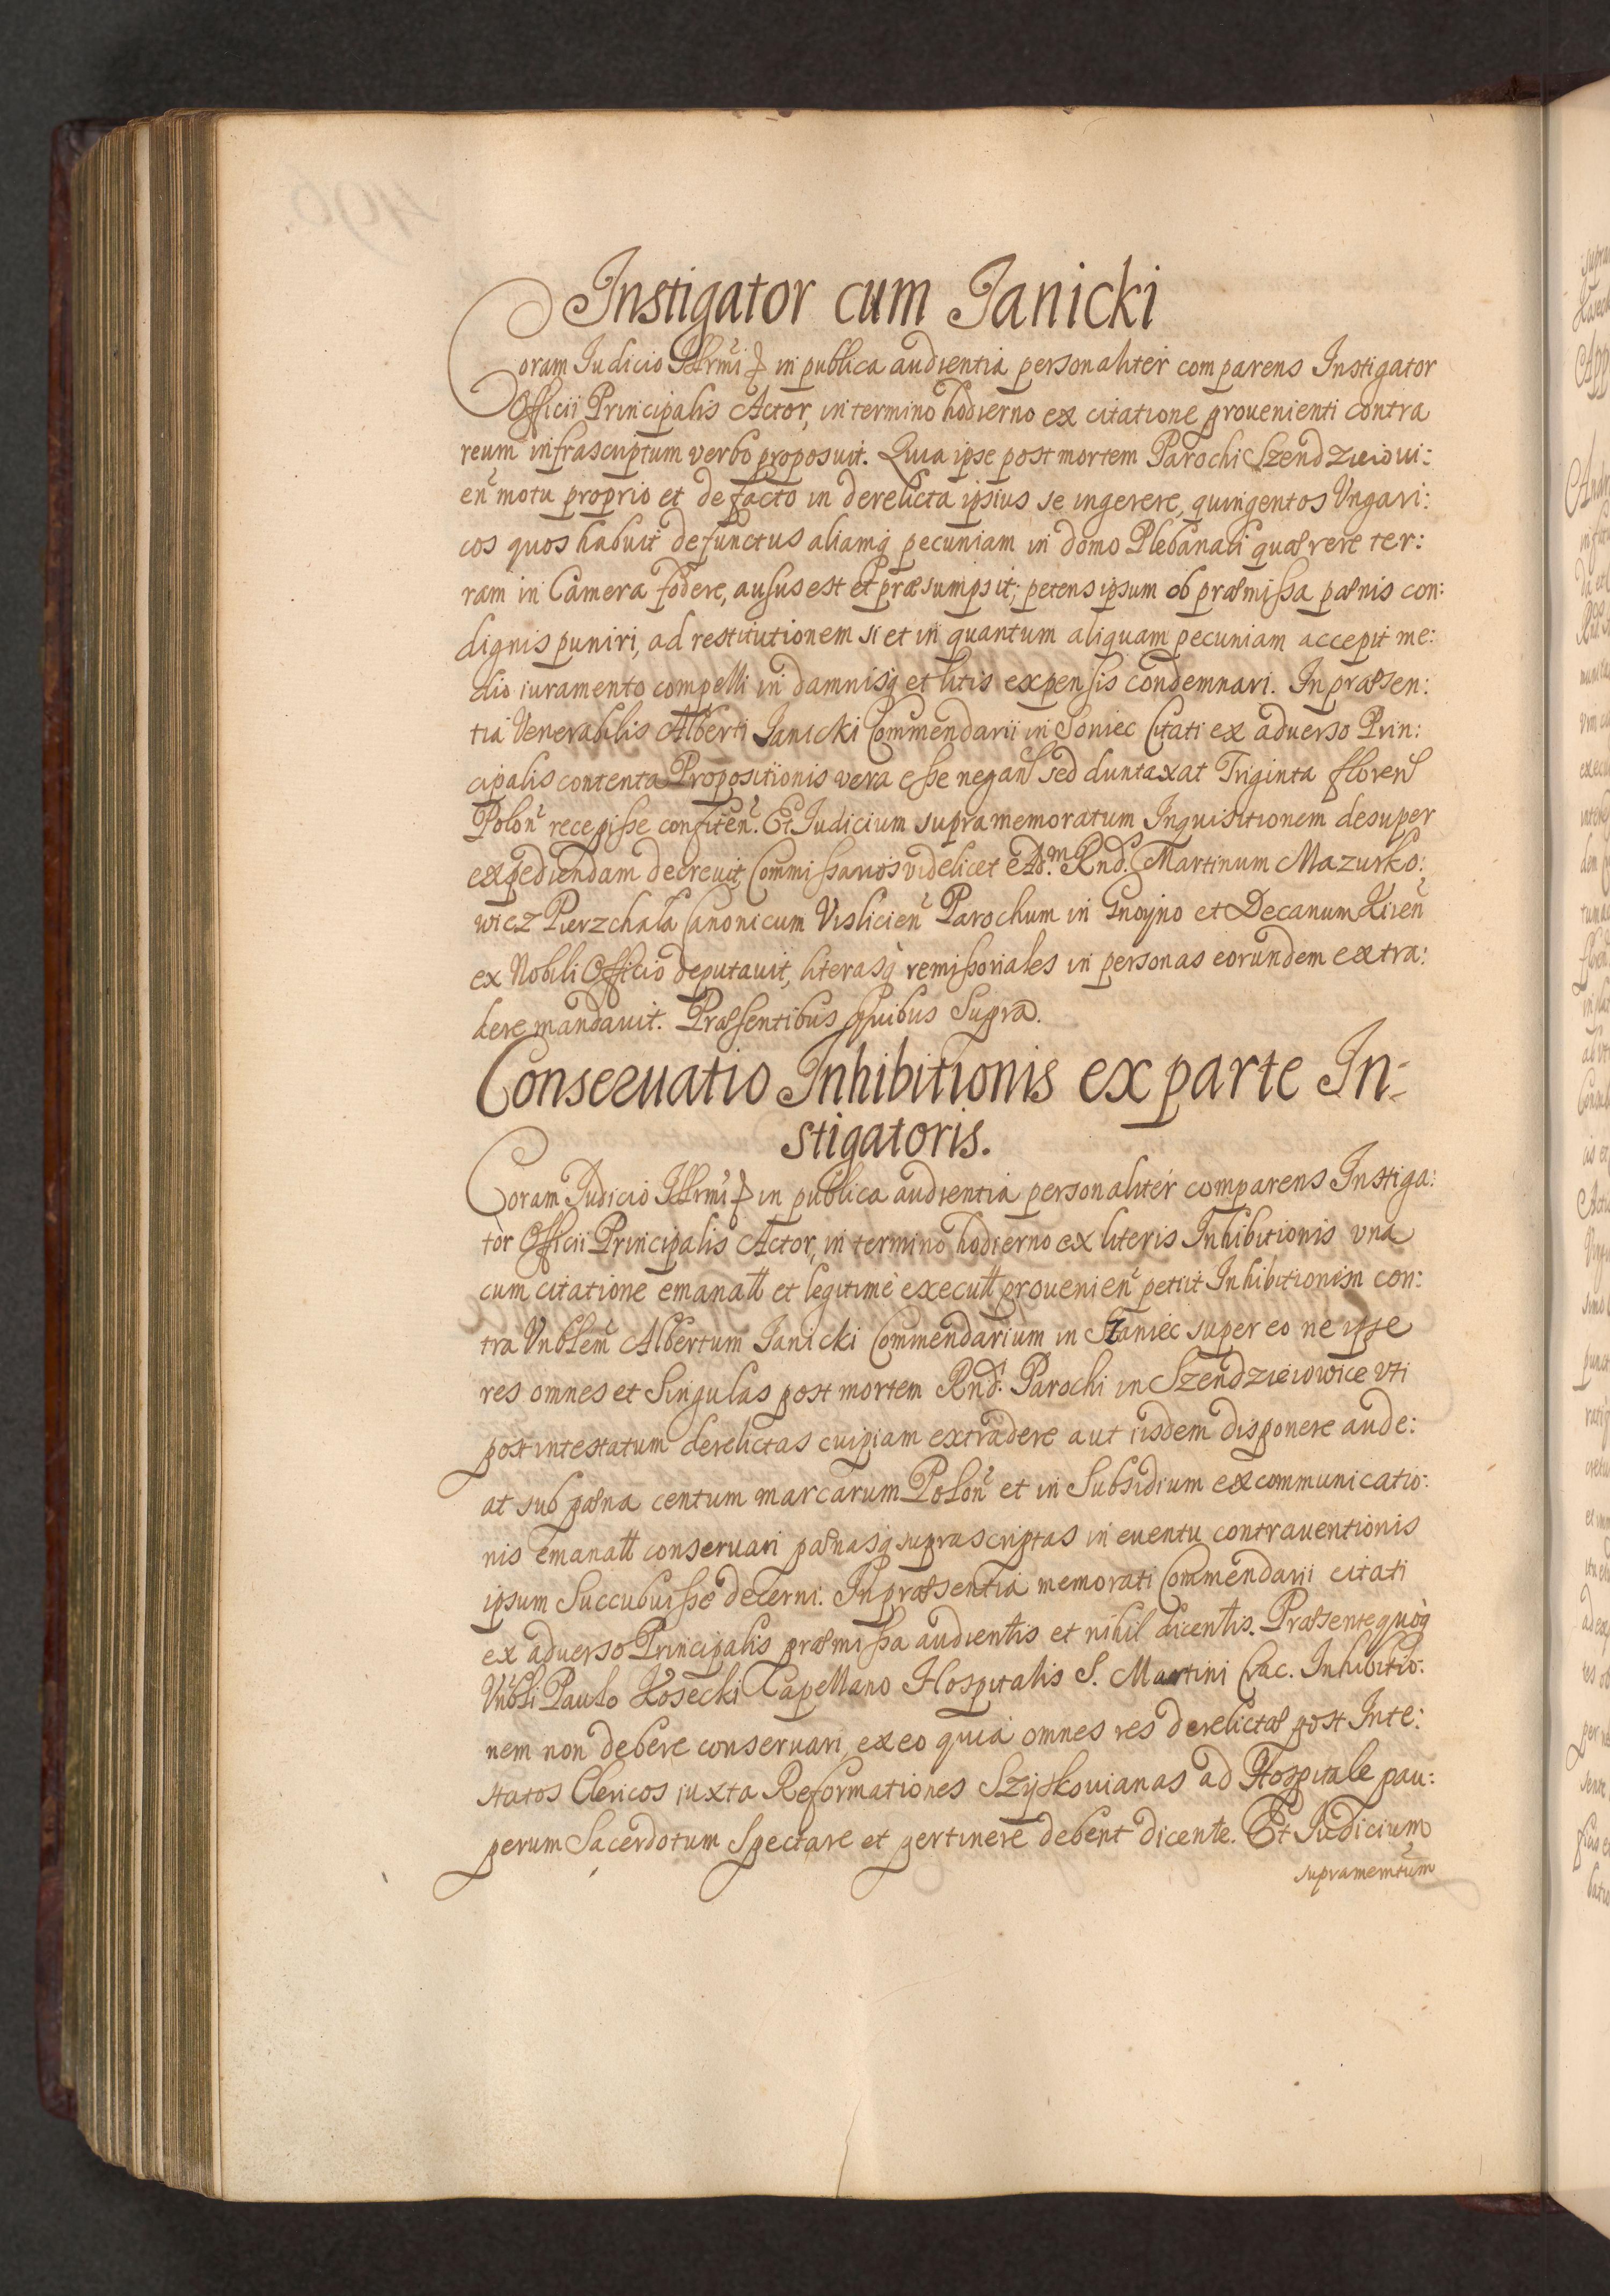 Instigator cum Janicki
Coram Judicio Illrmi in publica audientia personaliter comparens Instigator
Officii Principalis Actor, in termino hodierno ex citatione prouenienti contra
reum infrascriptum verbo proposuit. Quia ipse post mortem Parochi Szendzieiowi:
en motu proprio et de facto in derelicta ipsius se ingerere, quingentos Vngari:
cos quos habuit defunctus aliamq pecuniam in domo Plebanali quærere ter:
ram in Camera fodere, ausus est et præsumpsit; petens ipsum ob præmissa pænis con:
dignis puniri, ad restitutionem si et in quantum aliquam pecuniam accepit me:
dio iuramento compelli in damnisq et litis expensis condemnari. In præsen:
tia Venerabilis Alberti Janicki Commendarii in Soniec Citati ex aduerso Prin:
cipalis contenta Propositionis vera esse negan sed duntaxat Triginta floren
Polon recepisse confiten. Et Judicium supramemoratum Inquisitionem desuper
expediendam decreuit Commissarios videlicet Adm. Rnd. Martinum Mazurko:
wicz Pierzchala Canonicum Vislicien Parochum in Gnoyno et Decanum Kien
ex Nobili Officio deputauit, literasq remissoriales in personas eorundem extra:
dere mandauit. Præsentibus quibus Supra.
Conseruatio Inhibitionis ex parte In-
stigatoris.
Coram Judicio Illrmi in publica audientia personaliter comparens Instiga:
tor Officii Principalis Actor, in termino hodierno ex literis Inhibitionis vna
cum citatione emanatt et legitime executt prouenien petiit Inhibitionem con:
tra Vnblem Albertum Janicki Commendarium in Staniec super eo ne ipse
res omnes et Singulas post mortem Rnd. Parochi in Szendzieiowice vti
post intestatum derelictas cuipiam extradere aut iisdem disponere aude:
at sub pæna centum marcarum Polon et in Subsidium excommunicatio:
nis emanatt conseruari pænasq suprascriptas in euentu contrauentionis
ipsum Succubuisse decerni. In præsentia memorati Commendarii citati
ex aduerso Principalis præmissa audientis et nihil dicentis. Præsente quoq
Vnbli Paulo Kosecki Capellano Hospitalis S. Martini Crac. Inhibitio:
nem non debere conseruari, ex eo quia omnes res derelictæ post Inte:
statos Clericos iuxta Reformationes Szyskouianas ad Hospitale pau:
perum Sacerdotum Spectare et pertinere debent dicente. Et Judicium
supramemtum